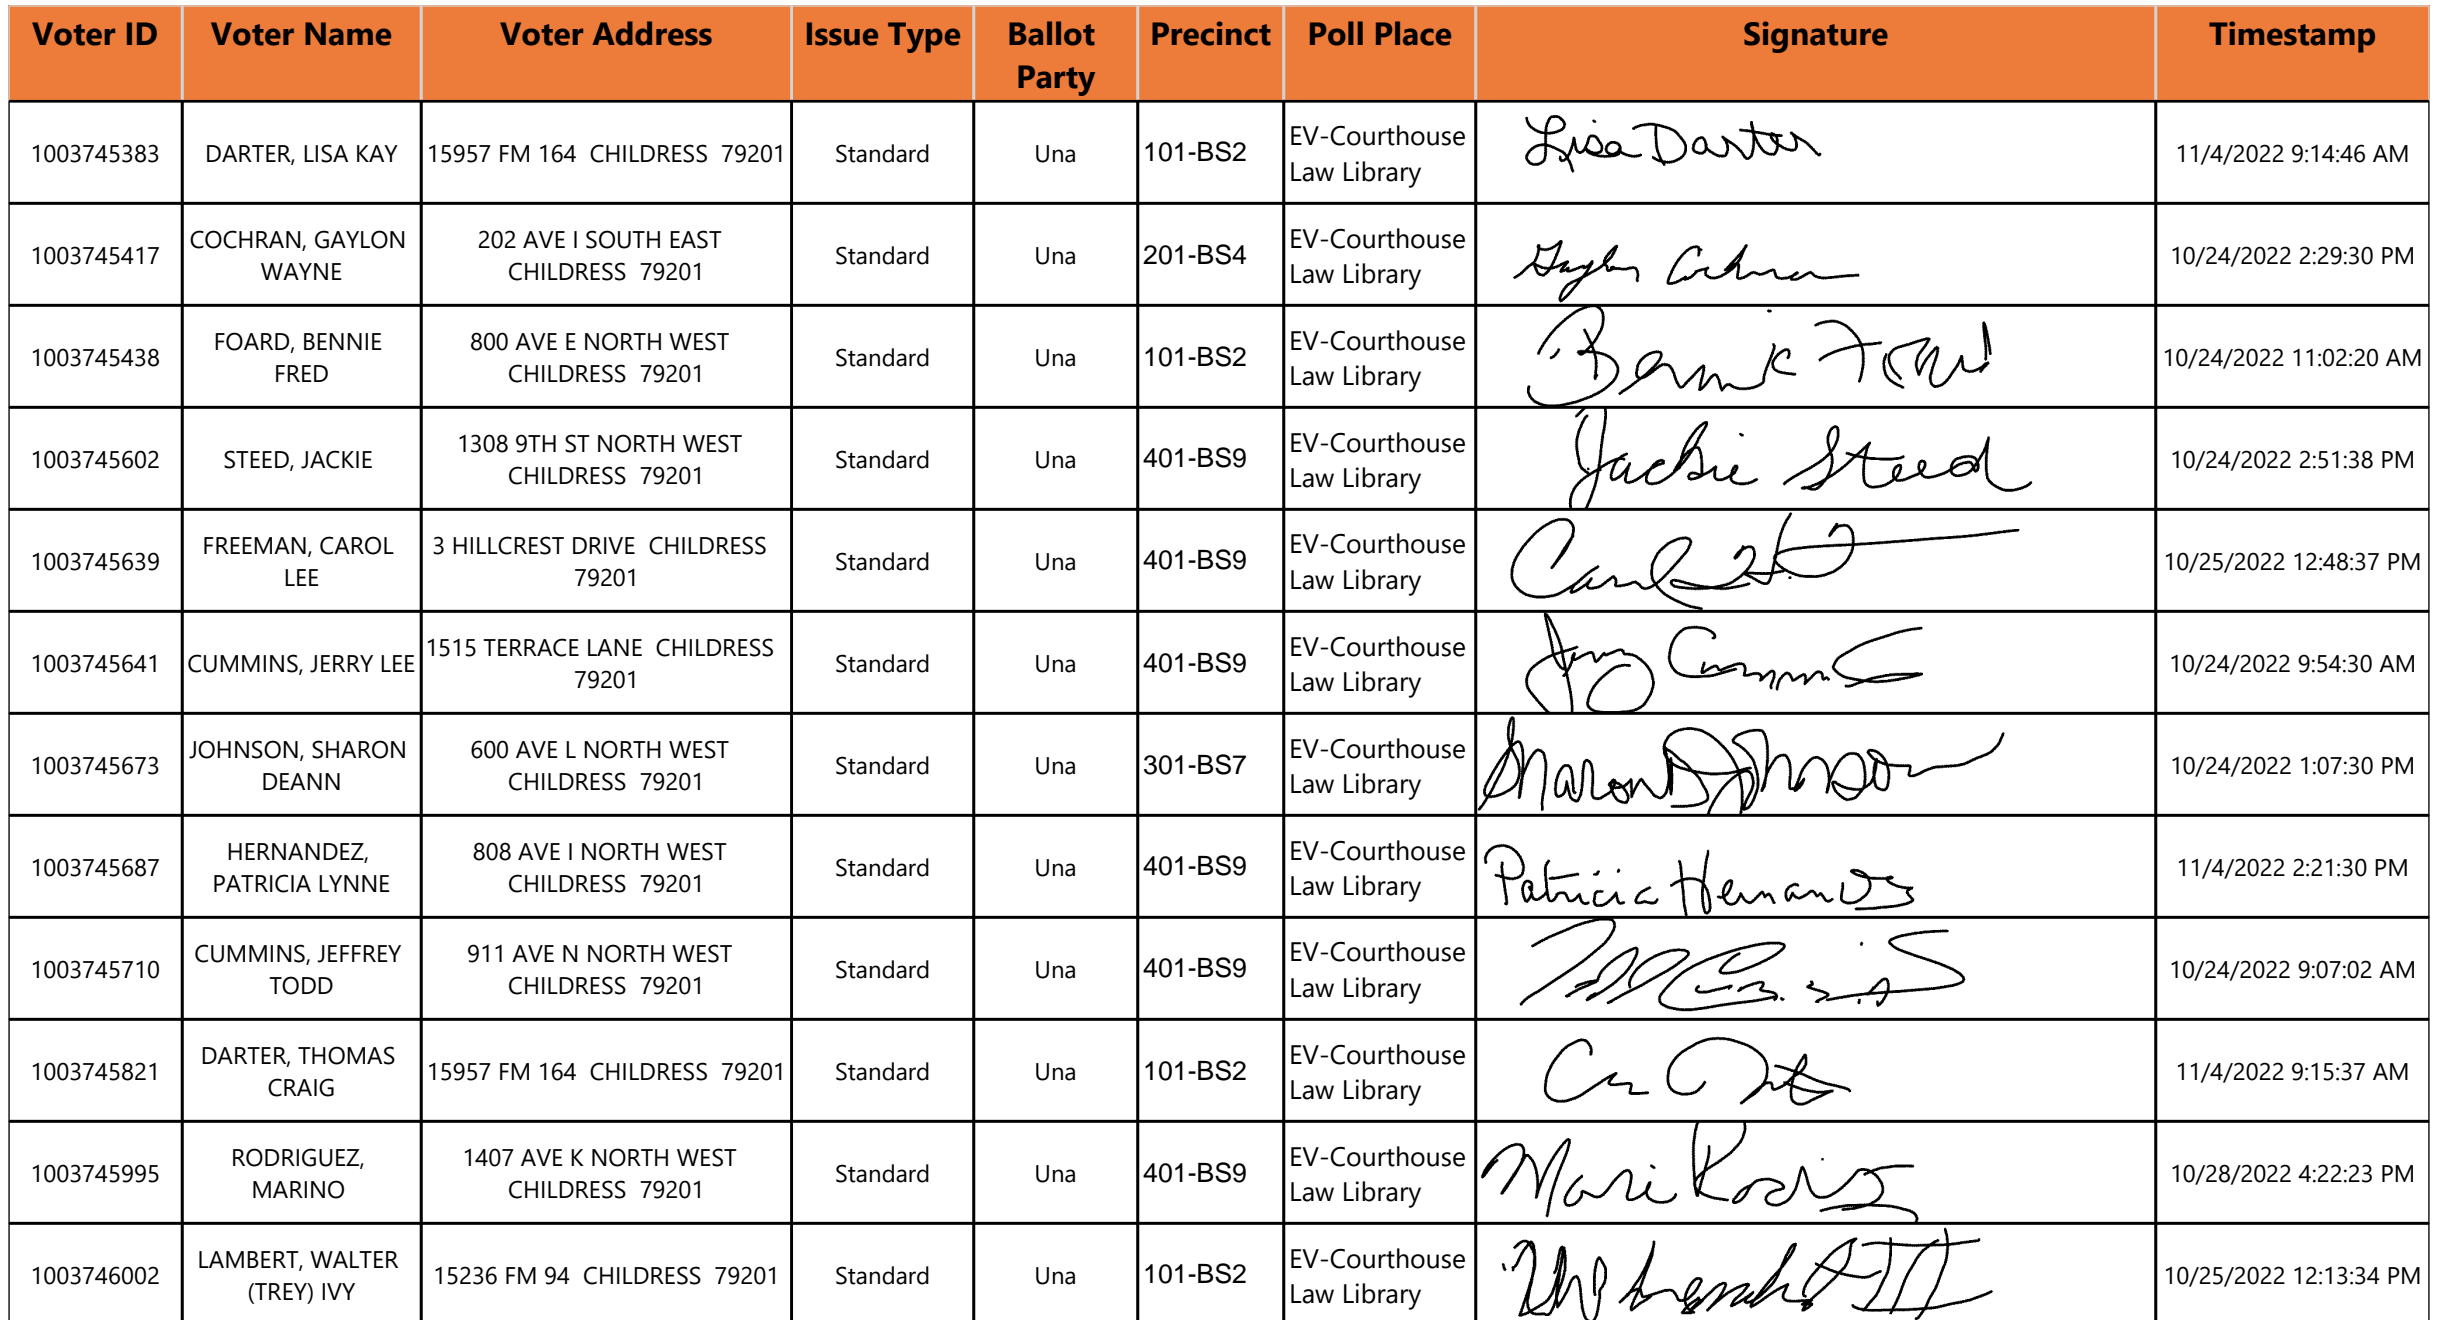 Voter ID Voter Name Voter Address Issue Type Ballot Party Precinct Poll Place Signature Timestamp
1003745383 DARTER, LISA KAY 15957 FM 164 CHILDRESS 79201 Standard Una 101-BS2 EV-Courthouse Law Library Lisa Darter 11/4/2022 9:14:46 AM
1003745417 COCHRAN, GAYLON WAYNE 202 AVE I SOUTH EAST CHILDRESS 79201 Standard Una 201-BS4 EV-Courthouse Law Library 10/24/2022 2:29:30 PM
1003745438 FOARD, BENNIE FRED 800 AVE E NORTH WEST CHILDRESS 79201 Standard Una 101-BS2 EV-Courthouse Law Library Bennie Foard 10/24/2022 11:02:20 AM
1003745602 STEED, JACKIE 1308 9TH ST NORTH WEST CHILDRESS 79201 Standard Una 401-BS9 EV-Courthouse Law Library Jackie Steed 10/24/2022 2:51:38 PM
1003745639 FREEMAN, CAROL LEE 3 HILLCREST DRIVE CHILDRESS 79201 Standard Una 401-BS9 EV-Courthouse Law Library 10/25/2022 12:48:37 PM
1003745641 CUMMINS, JERRY LEE 1515 TERRACE LANE CHILDRESS 79201 Standard Una 401-BS9 EV-Courthouse Law Library Jerry Cummins 10/24/2022 9:54:30 AM
1003745673 JOHNSON, SHARON DEANN 600 AVE L NORTH WEST CHILDRESS 79201 Standard Una 301-BS7 EV-Courthouse Law Library Sharon D Johnson 10/24/2022 1:07:30 PM
1003745687 HERNANDEZ, PATRICIA LYNNE 808 AVE I NORTH WEST CHILDRESS 79201 Standard Una 401-BS9 EV-Courthouse Law Library Patricia Hernandez 11/4/2022 2:21:30 PM
1003745710 CUMMINS, JEFFREY TODD 911 AVE N NORTH WEST CHILDRESS 79201 Standard Una 401-BS9 EV-Courthouse Law Library 10/24/2022 9:07:02 AM
1003745821 DARTER, THOMAS CRAIG 15957 FM 164 CHILDRESS 79201 Standard Una 101-BS2 EV-Courthouse Law Library 11/4/2022 9:15:37 AM
1003745995 RODRIGUEZ, MARINO 1407 AVE K NORTH WEST CHILDRESS 79201 Standard Una 401-BS9 EV-Courthouse Law Library 10/28/2022 4:22:23 PM
1003746002 LAMBERT, WALTER (TREY) IVY 15236 FM 94 CHILDRESS 79201 Standard Una 101-BS2 EV-Courthouse Law Library 10/25/2022 12:13:34 PM